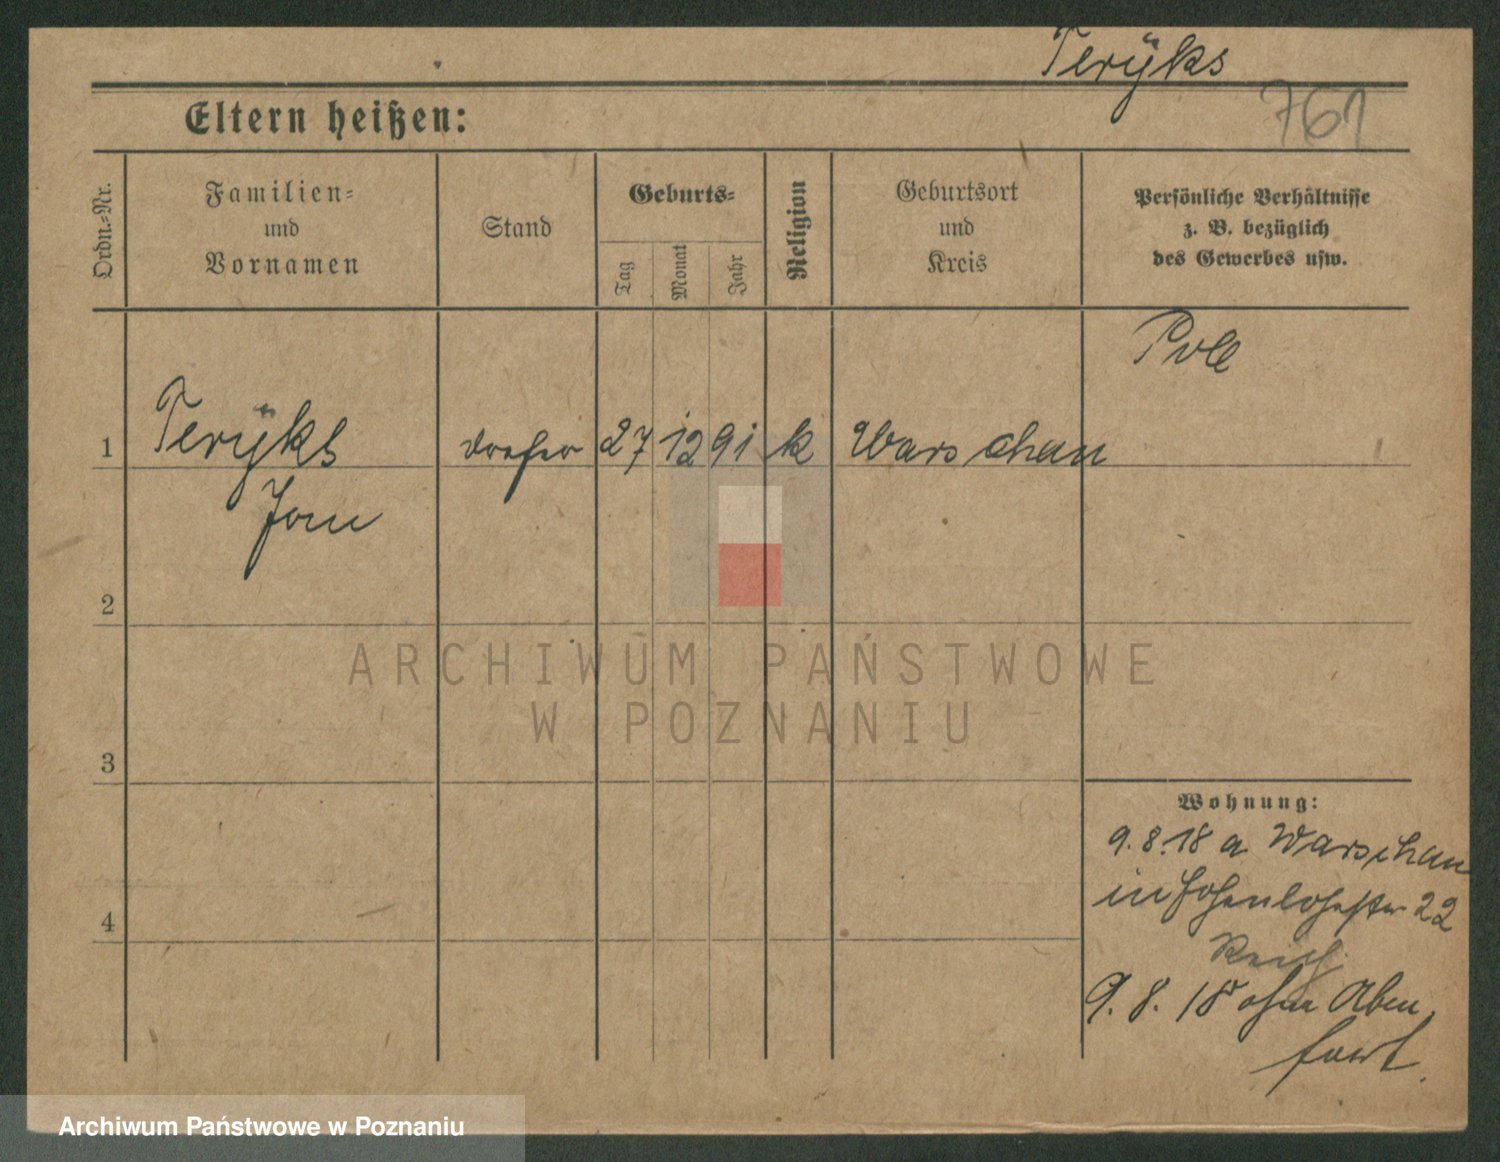 Terÿks
761
Eltern heißen:
Ordn.-Nr.
Familien-
und
Vornamen
Stand
Geburts-
Tag
Monat
Jahr
Religion
Geburtsort
und
Kreis
Persönliche Verhältnisse
z. B. bezüglich
des Gewerbes usw.
Pole
1 Terÿks 27 12 91 k Warschau
2
3
4
Wohnung:
9. 8. 18 a Warschau
in Hohenlohestr 22
9. 8. 18 ohne Abm
fort.
ARCHIWUM PAŃSTWOWE
W POZNANIU
Archiwum Państwowe w Poznaniu